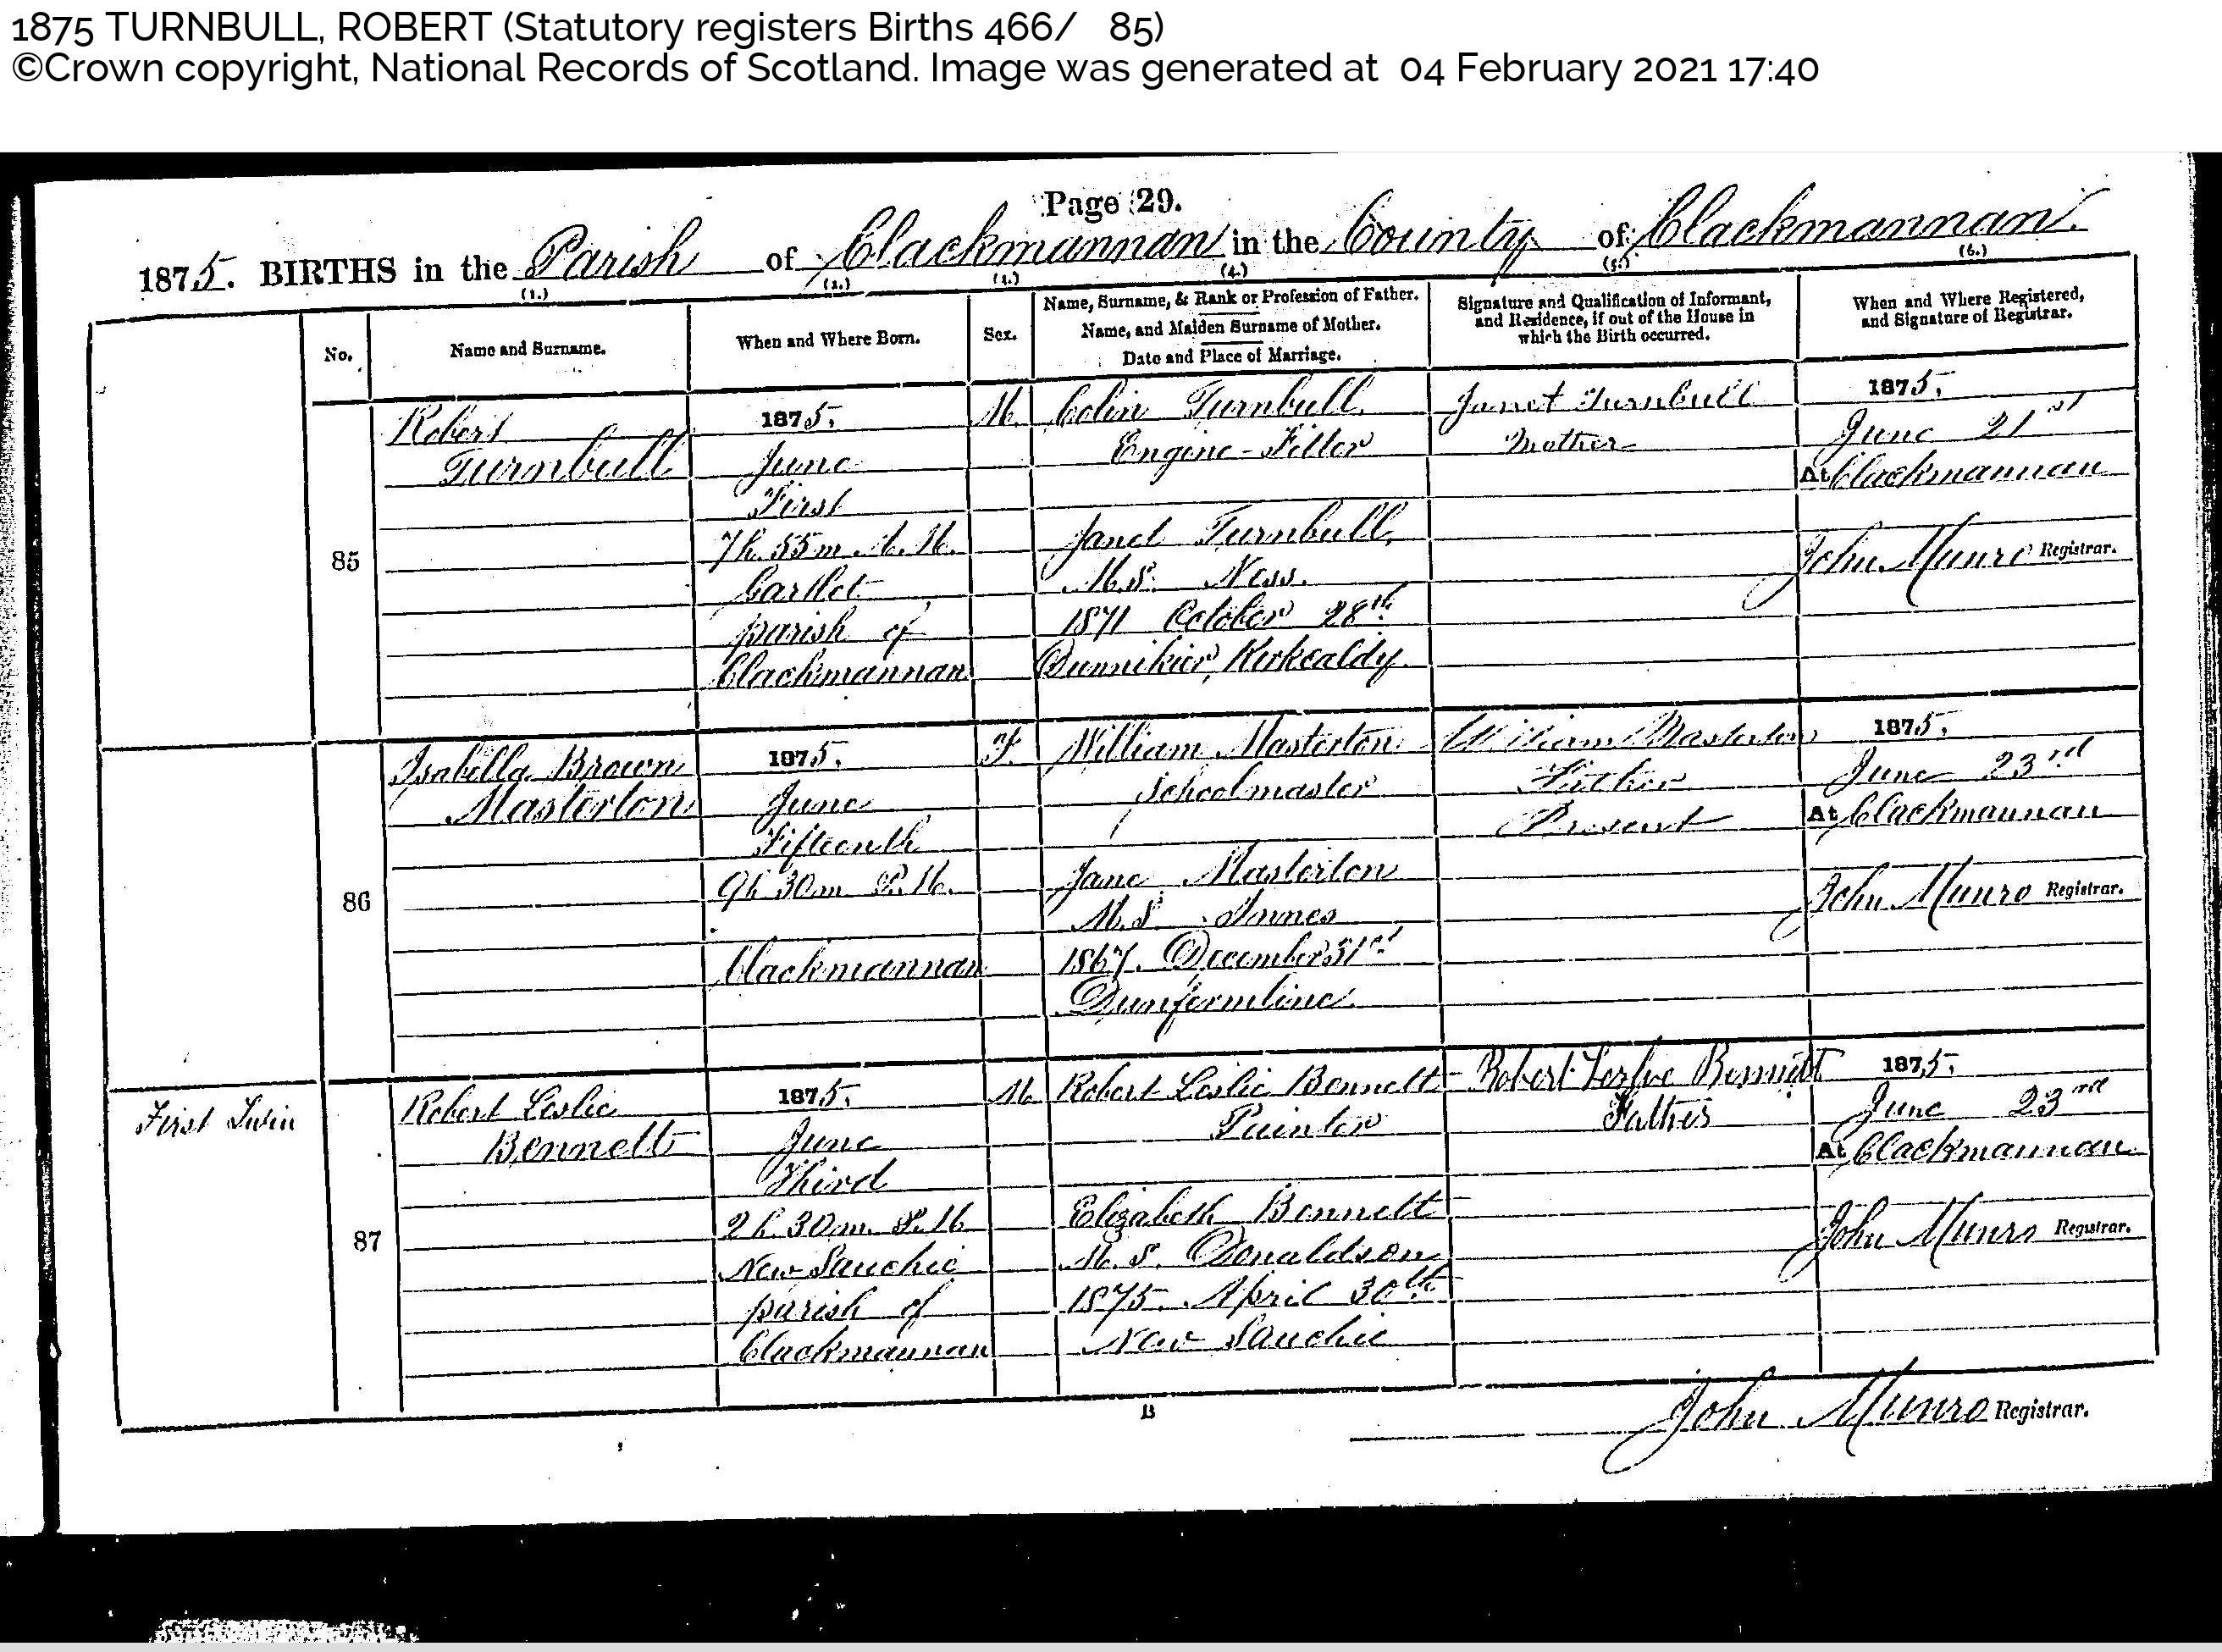 1875 TURNBULL, ROBERT (Statutory registers Births 466/ 85)
©Crown copyright, National Records of Scotland. Image was generated at 04 February 2021 17:40
Page 29.
1875. BIRTHS in the Parish of Clackmannan in the County of Clackmannan.
(1.) (2.) (3.) (4.) (5.) (6.)
No.
Name and Surname.
When and Where Born.
Sex.
Name, Surname, & Rank or Profession of Father.
Name, and Maiden Surname of Mother.
Date and Place of Marriage.
Signature and Qualification of Informant,
and Residence, if out of the House in
which the Birth occurred.
When and Where Registered,
and Signature of Registrar.
85
Robert
Turnbull
1875,
June
First
7h. 55m. A.M.
Gartlet
parish of
Clackmannan
M.
Colin Turnbull
Engine-Fitter
Janet Turnbull,
M.S. Ness.
1871 October 28th
Dunnikier, Kirkcaldy
Janet Turnbull
Mother
1875,
June 21st
At Clackmannan
John Munro Registrar.
86
Isabella Brown
Masterton
1875,
June
Fifteenth
9h. 30m P.M.
Clackmannan
F.
William Masterton
Schoolmaster
Jane Masterton
M.S. Innes
1867. December 31st
Dunfermline
William Masterton
Father
Present
1875,
June 23rd
At Clackmannan
John Munro Registrar.
First Twin
87
Robert Leslie
Bennett
1875,
June
Third
2h. 30m. P.M.
New Sauchie
parish of
Clackmannan
M.
Robert Leslie Bennett
Painter
Elizabeth Bennett
M.S. Donaldson
1875. April 30th
New Sauchie
Robert Leslie Bennett
Father
1875,
June 23rd
At Clackmannan
John Munro Registrar.
B
John Munro Registrar.